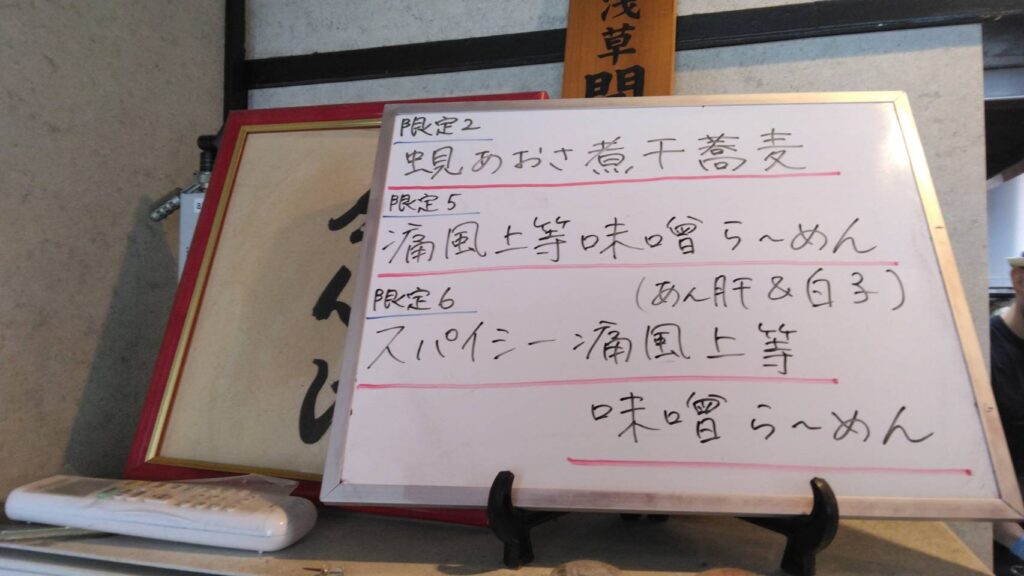 浅草開
限定2
蜆あおさ煮干蕎麦
限定5
痛風上等味噌ら〜めん
(あん肝&白子)
限定6
スパイシー痛風上等
味噌ら〜めん